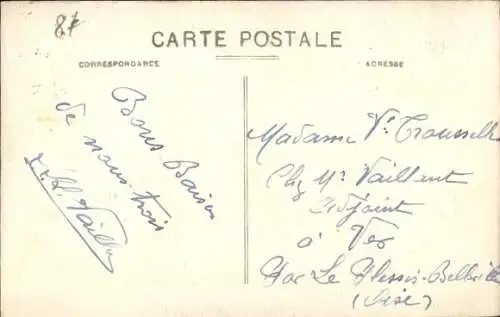 87
CARTE POSTALE
CORRESPONDANCE
ADRESSE
Bons Baisers
de nous trois
Vaillant
Madame Vve Trousselle
Chez Mr Vaillant
Adjoint
à Ver
Par Le Plessis-Belleville
(Oise)